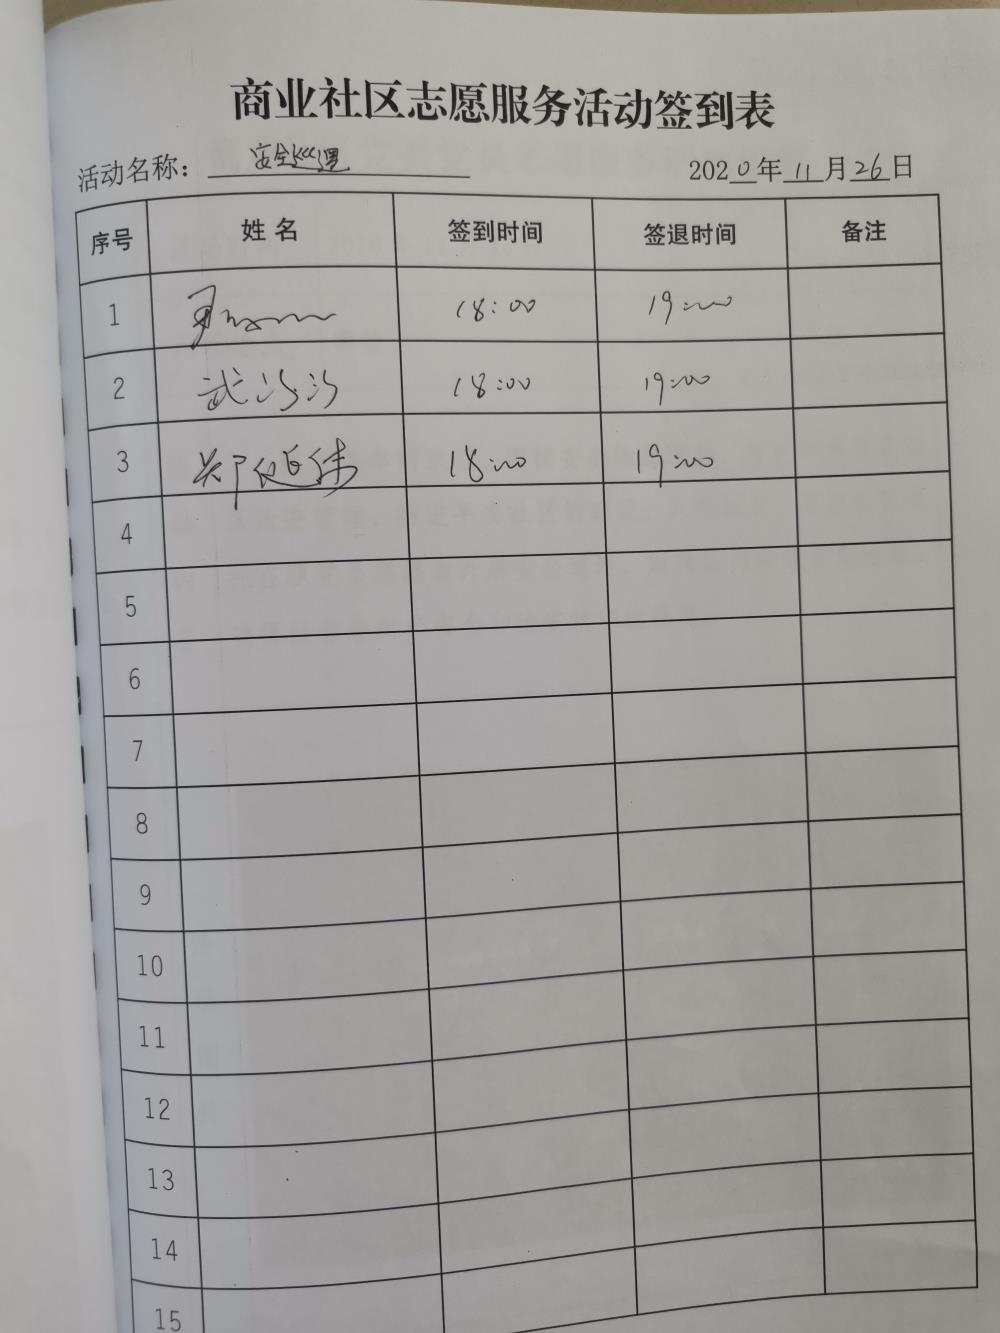 商业社区志愿服务活动签到表
活动名称： 安全巡逻 2020年11月26日
序号 姓名 签到时间 签退时间 备注
1 18:00 19:00
2 武汐汐 18:00 19:00
3 18:00 19:00
4
5
6
7
8
9
10
11
12
13
14
15